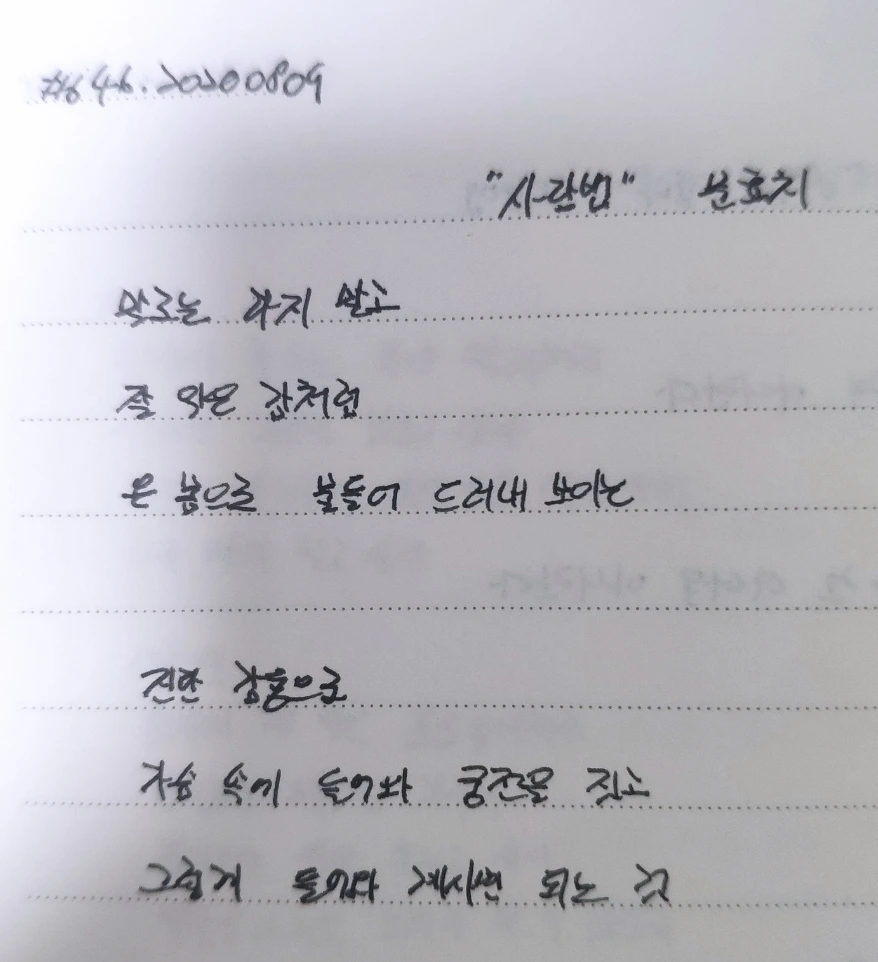 #646. 20200809
"사랑법" 문효치
말로는 하지 말고
잘 익은 감처럼
온 몸으로 물들어 드러내 보이는
진한 감동으로
가슴 속에 들어와 궁전을 짓고
그렇게 들어와 계시면 되는 것